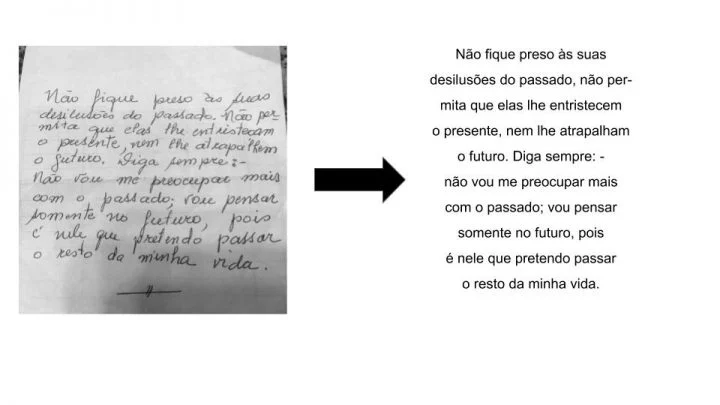 Não fique preso às suas
desilusões do passado. Não per-
mita que elas lhe entristeçam
o presente, nem lhe atrapalhem
o futuro. Diga sempre: -
Não vou me preocupar mais
com o passado; vou pensar
somente no futuro, pois
é nele que pretendo passar
o resto da minha vida.
Não fique preso às suas
desilusões do passado, não per-
mita que elas lhe entristecem
o presente, nem lhe atrapalham
o futuro. Diga sempre: -
não vou me preocupar mais
com o passado; vou pensar
somente no futuro, pois
é nele que pretendo passar
o resto da minha vida.